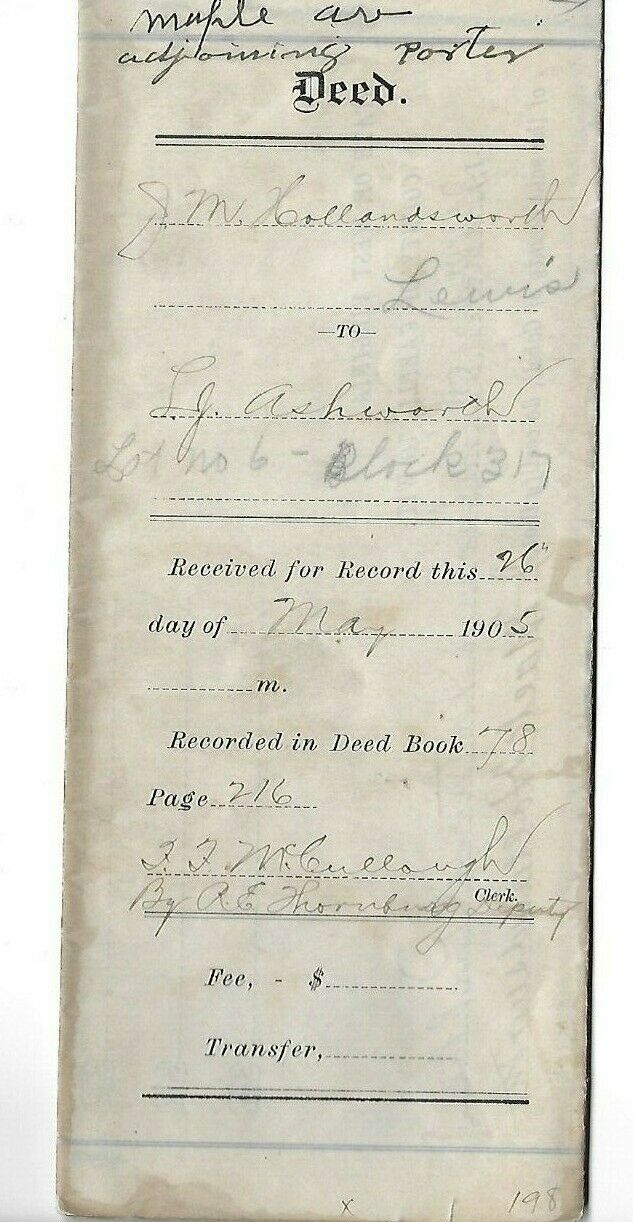 maple av
adjoining Porter
Deed.
J M. Hollandsworth
Lewis
—TO—
L.J. Ashworth
Lot no 6 - Block 317
Received for Record this 26"
day of May 1905
m.
Recorded in Deed Book 78
Page 216
F. F. McCullough
Clerk.
By R.E. Thornburg Deputy
Fee, - $
Transfer,
x 198